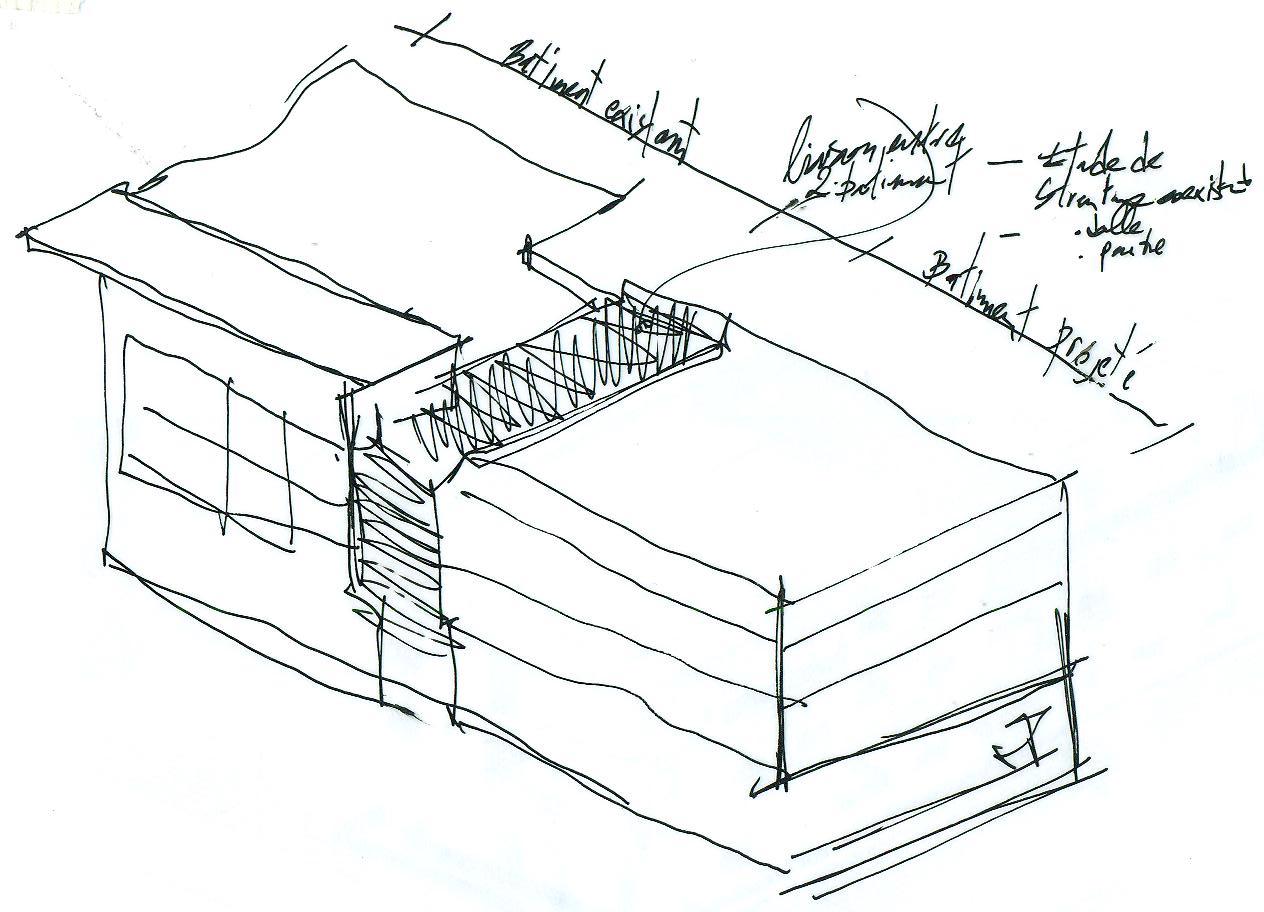 Batiment existant
liaison entre
2 batiment
— Etude de
Structure existant
— . dalle
. poutre
Batiment projeté